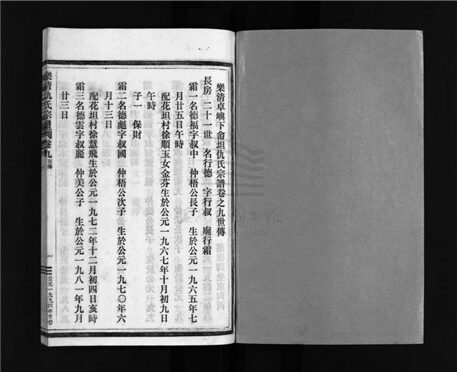 樂清卓嶼下侖垣仇氏宗譜卷之九世傳
長房 二十一世 名行德 字行叔 廟行霜
霜一名德福字叔中 仲梧公長子 生於公元一九六五年七
月廿五日午時
配花垣村徐順玉女金芬生於公元一九六七年十月初九日
午時
子一 保財
霜二名德彪字叔國 仲梧公次子 生於公元一九七〇年六
月十三日
配花垣村徐慧飛生於公元一九七三年十二月初四日亥時
霜三名德雲字叔嚴 仲美公子 生於公元一九八一年九月
廿三日
樂清仇氏宗譜 卷九
一